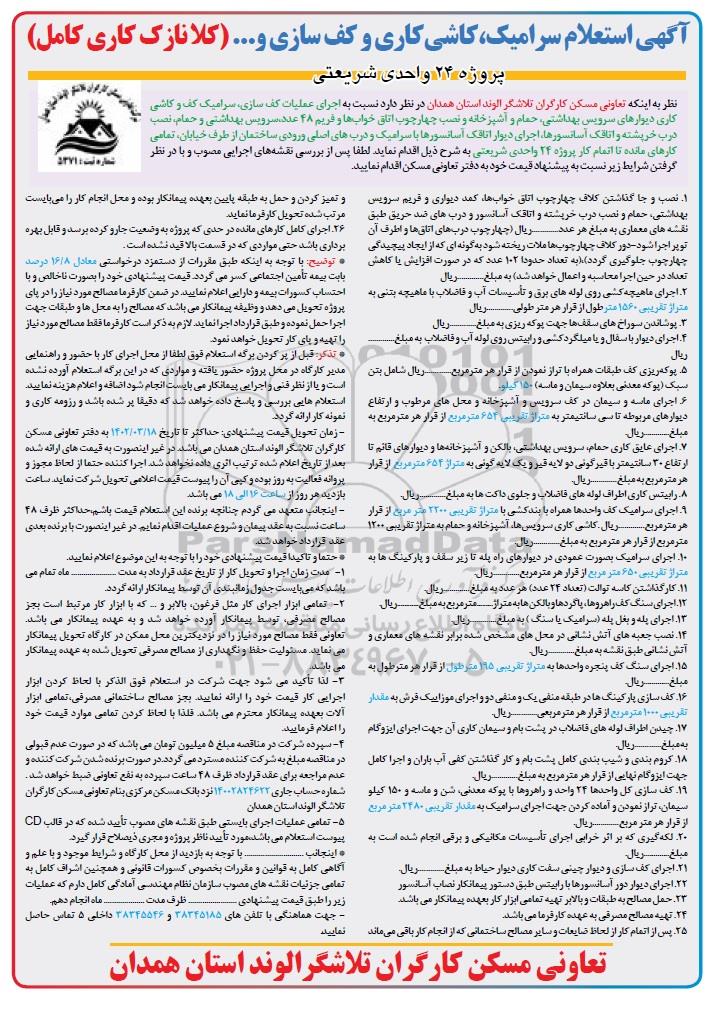 آگهی استعلام سرامیک، کاشی کاری و کف سازی و... (کلا نازک کاری کامل)
پروژه ۲۴ واحدی شریعتی
نظر به اینکه تعاونی مسکن کارگران تلاشگر الوند استان همدان در نظر دارد نسبت به اجرای عملیات کف سازی، سرامیک کف و کاشی
کاری دیوارهای سرویس بهداشتی، حمام و آشپزخانه و نصب چهارچوب اتاق خواب‌ها و فریم ۴۸ عدد،سرویس بهداشتی و حمام، نصب
درب خرپشته و اتاقک آسانسورها، اجرای دیوار اتاقک آسانسورها با سرامیک و درب های اصلی ورودی ساختمان از طرف خیابان، تمامی
کارهای مانده تا اتمام کار پروژه ۲۴ واحدی شریعتی به شرح ذیل اقدام نماید. لطفا پس از بررسی نقشه‌های اجرایی مصوب و با در نظر
گرفتن شرایط زیر نسبت به پیشنهاد قیمت خود به دفتر تعاونی مسکن اقدام نمایید.
شماره ثبت : ۵۳۷۱
۱. نصب و جا گذاشتن کلاف چهارچوب اتاق خواب‌ها، کمد دیواری و فریم سرویس
بهداشتی، حمام و نصب درب خرپشته و اتاقک آسانسور و درب های ضد حریق طبق
نقشه های معماری به مبلغ هر عدد............ریال (چهارچوب درب‌های اتاق‌ها و اطراف آن
تو پر اجرا شود-دور کلاف چهارچوب‌ها ملات ریخته شود به گونه ای که از ایجاد پیچیدگی
چهارچوب جلوگیری گردد)،(به تعداد حدودا ۱۰۲ عدد که در صورت افزایش یا کاهش
تعداد در حین اجرا محاسبه و اعمال خواهد شد) به مبلغ............ریال
۲. اجرای ماهیچه کشی روی لوله های برق و تأسیسات آب و فاضلاب با ماهیچه بتنی به
متراژ تقریبی ۱۵۶۰ مترطول از قرار هر متر طولی............ریال
۳. پوشاندن سوراخ های سقف‌ها جهت پوکه ریزی به مبلغ............ریال
۴. اجرای دیوار با سفال و یا میلگرد کشی و رابیتس روی لوله آب و فاضلاب به مبلغ............
ریال
۵. پوکه ریزی کف طبقات همراه با تراز نمودن از قرار هر مترمربع............ریال شامل بتن
سبک (پوکه معدنی بعلاوه سیمان و ماسه) ۱۵۰ کیلو.
۶. اجرای ماسه و سیمان در کف سرویس و آشپزخانه و محل های مرطوب و ارتفاع
دیوارهای مربوطه تا سی سانتیمتر به متراژ تقریبی ۶۵۴ مترمربع از قرار هر مترمربع به
مبلغ............ریال.
۷. اجرای عایق کاری حمام، سرویس بهداشتی، بالکن و آشپزخانه‌ها و دیوارهای قائم تا
ارتفاع ۳۰ سانتیمتر با قیرگونی دو لایه قیر و یک لایه گونی به متراژ ۶۵۴ مترمربع از قرار
هر مترمربع به مبلغ............ریال.
۸. رابیتس کاری اطراف لوله های فاضلاب و جلوی داکت ها به مبلغ............ریال.
۹. اجرای سرامیک کف واحدها همراه با بندکشی با متراژ تقریبی ۲۲۰۰ متر مربع از قرار
هر مترمربع............ریال. کاشی کاری سرویس‌ها، آشپزخانه و حمام به متراژ تقریبی ۱۲۰۰
مترمربع از قرار هر مترمربع به مبلغ............ریال.
۱۰. اجرای سرامیک بصورت عمودی در دیوارهای راه پله تا زیر سقف و پارکینگ ها به
متراژ تقریبی ۶۵۰ متر مربع از قرار هر مترمربع............ریال.
۱۱. کارگذاشتن کاسه توالت (تعداد ۲۴ عدد) هر عدد به مبلغ............ریال.
۱۲. اجرای سنگ کف راهروها، پاگردها و بالکن ها به متراژ.......مترمربع به مبلغ..........ریال.
۱۳. اجرای پله و بغل پله (سرامیک یا سنگ) به مبلغ............ریال.
۱۴. نصب جعبه های آتش نشانی در محل های مشخص شده برابر نقشه های معماری و
آتش نشانی طبق نقشه به مبلغ............ریال.
۱۵. اجرای سنگ کف پنجره واحدها به متراژ تقریبی ۱۹۵ مترطول از قرار هر مترطول به
مبلغ............ریال.
۱۶. کف سازی پارکینگ ها در طبقه منفی یک و منفی دو و اجرای موزاییک فرش به مقدار
تقریبی ۱۰۰۰ مترمربع از قرار هر مترمربعی............ریال.
۱۷. چیدن اطراف لوله های فاضلاب در پشت بام و سیمان کاری آن جهت اجرای ایزوگام
به مبلغ............ریال.
۱۸. کروم بندی و شیب بندی کامل پشت بام و کار گذاشتن کفی آب باران و اجرا کامل
جهت ایزوگام نهایی از قرار هر مترمربع به مبلغ............ریال.
۱۹. کف سازی کل واحدها ۲۴ واحد و راهروها با پوکه معدنی، شن و ماسه و ۱۵۰ کیلو
سیمان، تراز نمودن و آماده کردن جهت اجرای سرامیک به مقدار تقریبی ۲۴۸۰ متر مربع
از قرار هر متر مربع............ریال.
۲۰. لکه گیری که بر اثر خرابی اجرای تأسیسات مکانیکی و برقی انجام شده است به
مبلغ............ریال.
۲۱. اجرای کف سازی و دیوار چینی سفت کاری دیوار حیاط به مبلغ............ریال.
۲۲. اجرای دیوار دور آسانسورها با رابیتس طبق دستور پیمانکار نصاب آسانسور
۲۳. حمل مصالح به طبقات و بالابر تهیه تمامی ابزار کار بعهده پیمانکار می باشد.
۲۴. تهیه مصالح مصرفی به عهده کارفرما می باشد.
۲۵. پس از اتمام کار از لحاظ ضایعات و سایر مصالح ساختمانی که از انجام کار باقی می‌ماند
و تمیز کردن و حمل به طبقه پایین بعهده پیمانکار بوده و محل انجام کار را می‌بایست
مرتب شده تحویل کارفرما نماید.
۲۶. اجرای کامل کارهای مانده در حدی که پروژه به وضعیت جارو کرده برسد و قابل بهره
برداری باشد حتی مواردی که در قسمت بالا قید نشده است .
* توضیح: با توجه به اینکه طبق مقررات از دستمزد درخواستی معادل ۱۶/۸ درصد
بابت بیمه تأمین اجتماعی کسر می گردد. قیمت پیشنهادی خود را بصورت ناخالص و با
احتساب کسورات بیمه و دارایی اعلام نمایید. در ضمن کارفرما مصالح مورد نیاز را در پای
پروژه تحویل می دهد و وظیفه پیمانکار می باشد که مصالح را به محل ها و طبقات جهت
اجرا حمل نموده و طبق قرارداد اجرا نماید. لازم به ذکر است کارفرما فقط مصالح مورد نیاز
را تهیه و پای کار تحویل خواهد نمود.
* تذکر: قبل از پر کردن برگه استعلام فوق لطفا از محل اجرای کار با حضور و راهنمایی
مدیر کارگاه در محل پروژه حضور یافته و مواردی که در این برگه استعلام آورده نشده
است و یا از نظر فنی و اجرایی پیمانکار می بایست انجام شود اضافه و اعلام هزینه نمایید.
استعلام هایی بررسی و پاسخ داده خواهد شد که دقیقا پر شده باشد و رزومه کاری و
نمونه کار ارائه گردد.
- زمان تحویل قیمت پیشنهادی: حداکثر تا تاریخ ۱۴۰۲/۰۳/۱۸ به دفتر تعاونی مسکن
کارگران تلاشگر الوند استان همدان می باشد. در غیر اینصورت به قیمت های ارائه شده
بعد از تاریخ اعلام شده ترتیب اثری داده نخواهد شد. اجرا کننده حتما از لحاظ مجوز و
پروانه فعالیت به روز بوده و کپی آن را پیوست قیمت اعلامی تحویل شرکت نماید. ساعت
بازدید هر روز از ساعت ۱۶ الی ۱۸ می باشد.
- اینجانب متعهد می گردم چنانچه برنده این استعلام قیمت باشم،حداکثر ظرف ۴۸
ساعت نسبت به عقد پیمان و شروع عملیات اقدام نمایم. در غیر اینصورت با برنده بعدی
عقد قرارداد خواهد شد.
*حتما و تاکیدا قیمت پیشنهادی خود را با توجه به این موضوع اعلام نمایید.
۱- مدت زمان اجرا و تحویل کار از تاریخ عقد قرارداد به مدت ................... ماه تمام می
باشد که می‌بایست جدول زمانبندی آن توسط پیمانکار ارائه گردد.
۲- تمامی ابزار اجرای کار مثل فرغون، بالابر و ... که با ابزار کار مرتبط است بجز
مصالح مصرفی، توسط پیمانکار آورده خواهد شد و به عهده پیمانکار می باشد.
تعاونی فقط مصالح مورد نیاز را در نزدیکترین محل ممکن در کارگاه تحویل پیمانکار
می نماید. مسئولیت حفظ و نگهداری از مصالح مصرفی تحویل شده به عهده پیمانکار
می باشد.
۳- لذا تأکید می شود جهت شرکت در استعلام فوق الذکر با لحاظ کردن ابزار
اجرایی کار قیمت خود را ارائه نمایید. بجز مصالح ساختمانی مصرفی،تمامی ابزار
آلات بعهده پیمانکار محترم می باشد. فلذا با لحاظ کردن تمامی موارد قیمت خود
را اعلام فرمایید.
۴- سپرده شرکت در مناقصه مبلغ ۵ میلیون تومان می باشد که در صورت عدم قبولی
در مناقصه مبلغ به شرکت کننده مسترد می گردد. در صورت برنده شدن شرکت کننده و
عدم مراجعه برای عقد قرارداد ظرف ۴۸ ساعت سپرده به نفع تعاونی ضبط خواهد شد .
شماره حساب جاری ۱۴۰۰۲۸۲۴۶۲۲ نزد بانک مسکن مرکزی بنام تعاونی مسکن کارگران
تلاشگر الوند استان همدان
۵- تمامی عملیات اجرای بایستی طبق نقشه های مصوب تأیید شده که در قالب CD
پیوست استعلام می باشد،مورد تأیید ناظر پروژه و مجری ذیصلاح قرار گیرد.
* اینجانب ......................... با توجه به بازدید از محل کارگاه و شرایط موجود و با علم و
آگاهی کامل به قوانین و مقررات بخصوص کسورات قانونی و همچنین اشراف کامل به
تمامی جزئیات نقشه های مصوب سازمان نظام مهندسی آمادگی کامل دارم که عملیات
زیر را طبق قیمت پیشنهادی ..................... ظرف مدت ................... ماه انجام دهم.
- جهت هماهنگی با تلفن های ۳۸۳۴۵۱۸۵ و ۳۸۳۴۵۵۴۶ داخلی ۵ تماس حاصل
نمایید.
ParsNamadData
۰۲۱-۸۸۳۴۹۶۷۰-۵
تعاونی مسکن کارگران تلاشگر الوند استان همدان